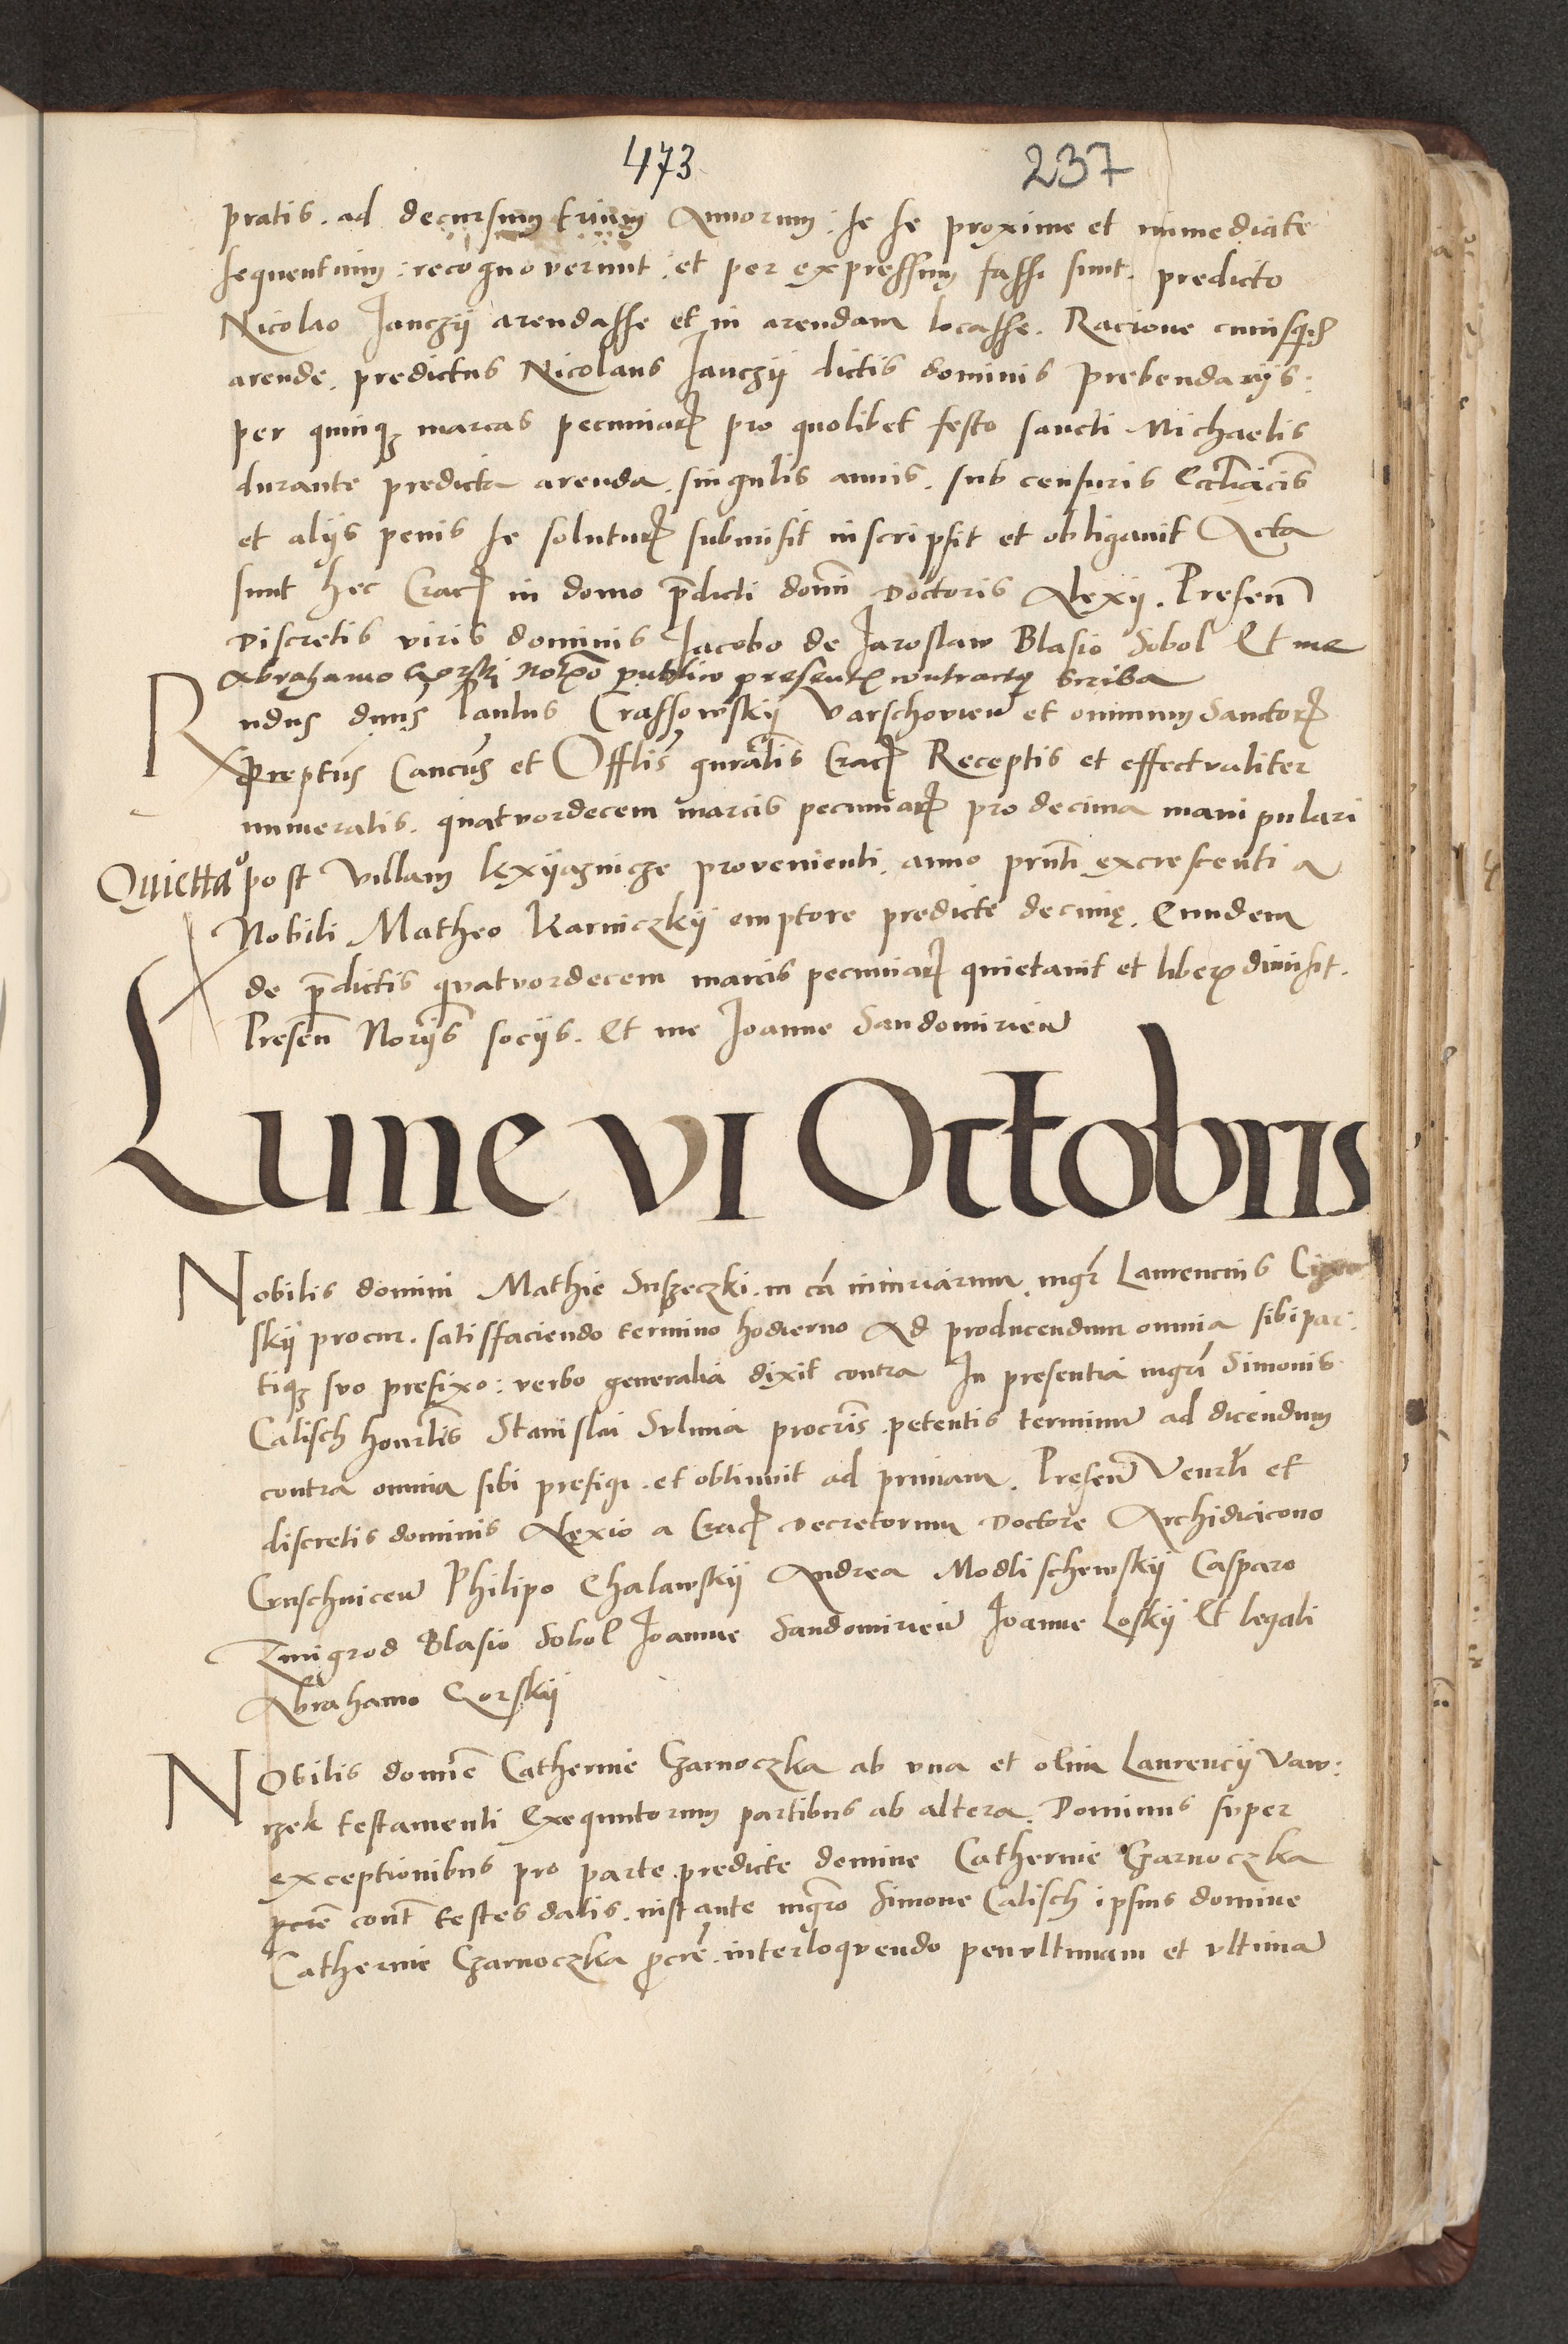 473 237
pratis. ad decursum trium Annorum: se se proxime et immediate
sequentium: recognoverunt: et per expressum fassi sunt. predicto
Nicolao Janczÿ arendasse et in arendam locasse. Racione cuiusq₃
arende. predictus Nicolaus Janczÿ dictis dominis prebendarÿs:
per quinq₃ marcas pecuniaꝝ pro quolibet festo sancti Michaelis
durante predicta arenda. singulis annis. sub censuris Eccl̄iacis
et alÿs penis se solutuꝝ submisit inscripsit et obligavit Acta
sunt hec Cracꝭ in domo p̄dicti domī Doctoris Alexÿ. Presen̄
Discretis viris dominis Jacobo de Jaroslaw Blasio Sobol Et me
Abrahamo Gorskÿ Notō publico presentꝭ contractꝯ scriba
Rndus dnūs Paulus Crassowskÿ Varschovien̄ et omnium Sanctoꝝ
Prept̄us Cancūs et Offlīs gnrālis Cracꝭ Receptis et effectualiter
numeratis. quatuordecem marcis pecuniaꝝ pro decima manipulari
Quietta° post Villam kxÿąznicze provenienti. anno prn̄ti excrescenti a
Nobili Matheo Karniczkÿ emptore predicte decimę. Eundem
de p̄dictis quatuordecem marcis pecuniaꝝ quietavit et liberꝭ dimisit.
Presen̄ Norÿs socÿs. Et me Joanne Sandomirien̄
Lune VI Octobris
Nobilis domini Mathie Suszeczki. in cā iniuriarum. mgr̄ Laurencius
skÿ procur. satisfaciendo termino hodierno Ad producendum omnia sibi par:
tiq₃ suo prefixo: verbo generalia dixit contra In presentia mgrī Simonis
Calisch honrl̄is Stanislai Sulima procrīs. petentis terminū ad dicendum
contra omnia sibi prefigi. et obtinuit ad primam. Presen̄ Venrl̄i et
discretis dominis Alexio a Cracꝭ Decretorum Doctore Archidiacono
Cruschvicen̄ Philipo Chalawskÿ Andrea Modlischewskÿ Casparo
Zmigrod Blasio Sobol Joanne Sandomirien̄ Joanne Loskÿ Et legali
Abrahamo Gorskÿ
NObilis domīe Catherine Czarnoczka ab una et olim Laurencÿ Vaw:
rzek testamenti Exequutorum partibus ab altera. Dominus super
exceptionibus pro parte. predicte domine Catherine Czarnoczka
pcrē cont̄ testes datis. instante mgrō Simone Calisch ipsius domine
Catherine Czarnoczka pcrē. interloquendo penultimam et ultimā